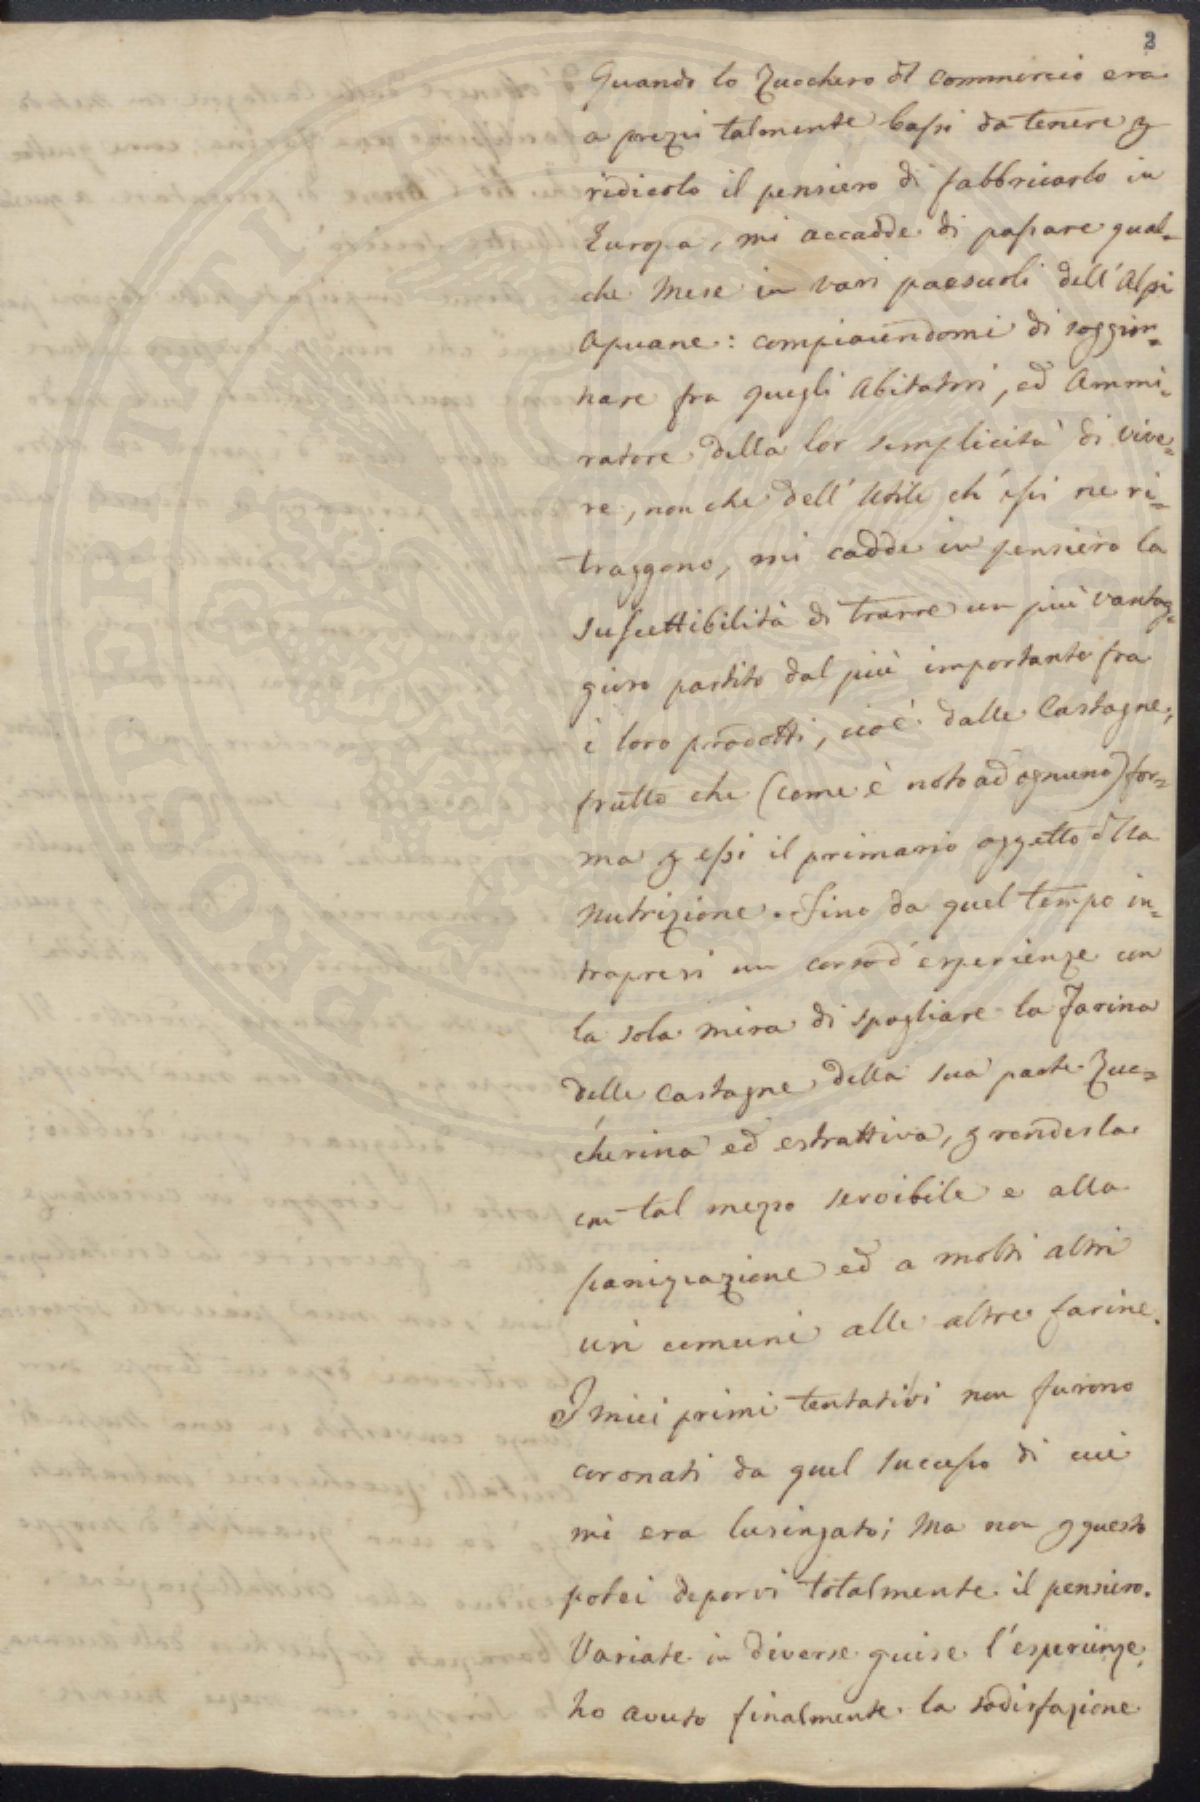 2
Quando lo Zucchero dl commercio era
a prezzi talmente bassi da tenere p
ridicolo il pensiero di fabbricarlo in
Europa, mi accadde di passare qual=
che Mese in vari paesuoli dell'Alpi
Apuane: compiacendomi di soggior=
nare fra quegli Abitatori, ed Ammi=
ratore della lor semplicità di vive=
re, non che dell'Utile ch'essi ne ri=
traggono, mi cadde in pensiero la
suscettibilità di trarre un più vantag=
gioso partito dal più importante fra
i loro prodotti, cioè dalle Castagne,
frutto che (come è noto ad ognuno) for=
ma p essi il primario oggetto dlla
Nutrizione. Fino da quel tempo in=
trapresi un corso d'esperienze con
la sola mira di spogliare la Farina
delle Castagne della sua parte Zuc=
cherina ed estrattiva, p renderla
con tal mezzo servibile e alla
panizzazione ed a molti altri
usi comuni alle altre farine.
I miei primi tentativi non furono
coronati da quel successo di cui
mi era lusingato; Ma non p questo
potei deporvi totalmente il pensiero.
Variate in diverse guise l'esperienze,
ho avuto finalmente la sodisfazione
PROSPERITATI PUBLICAE